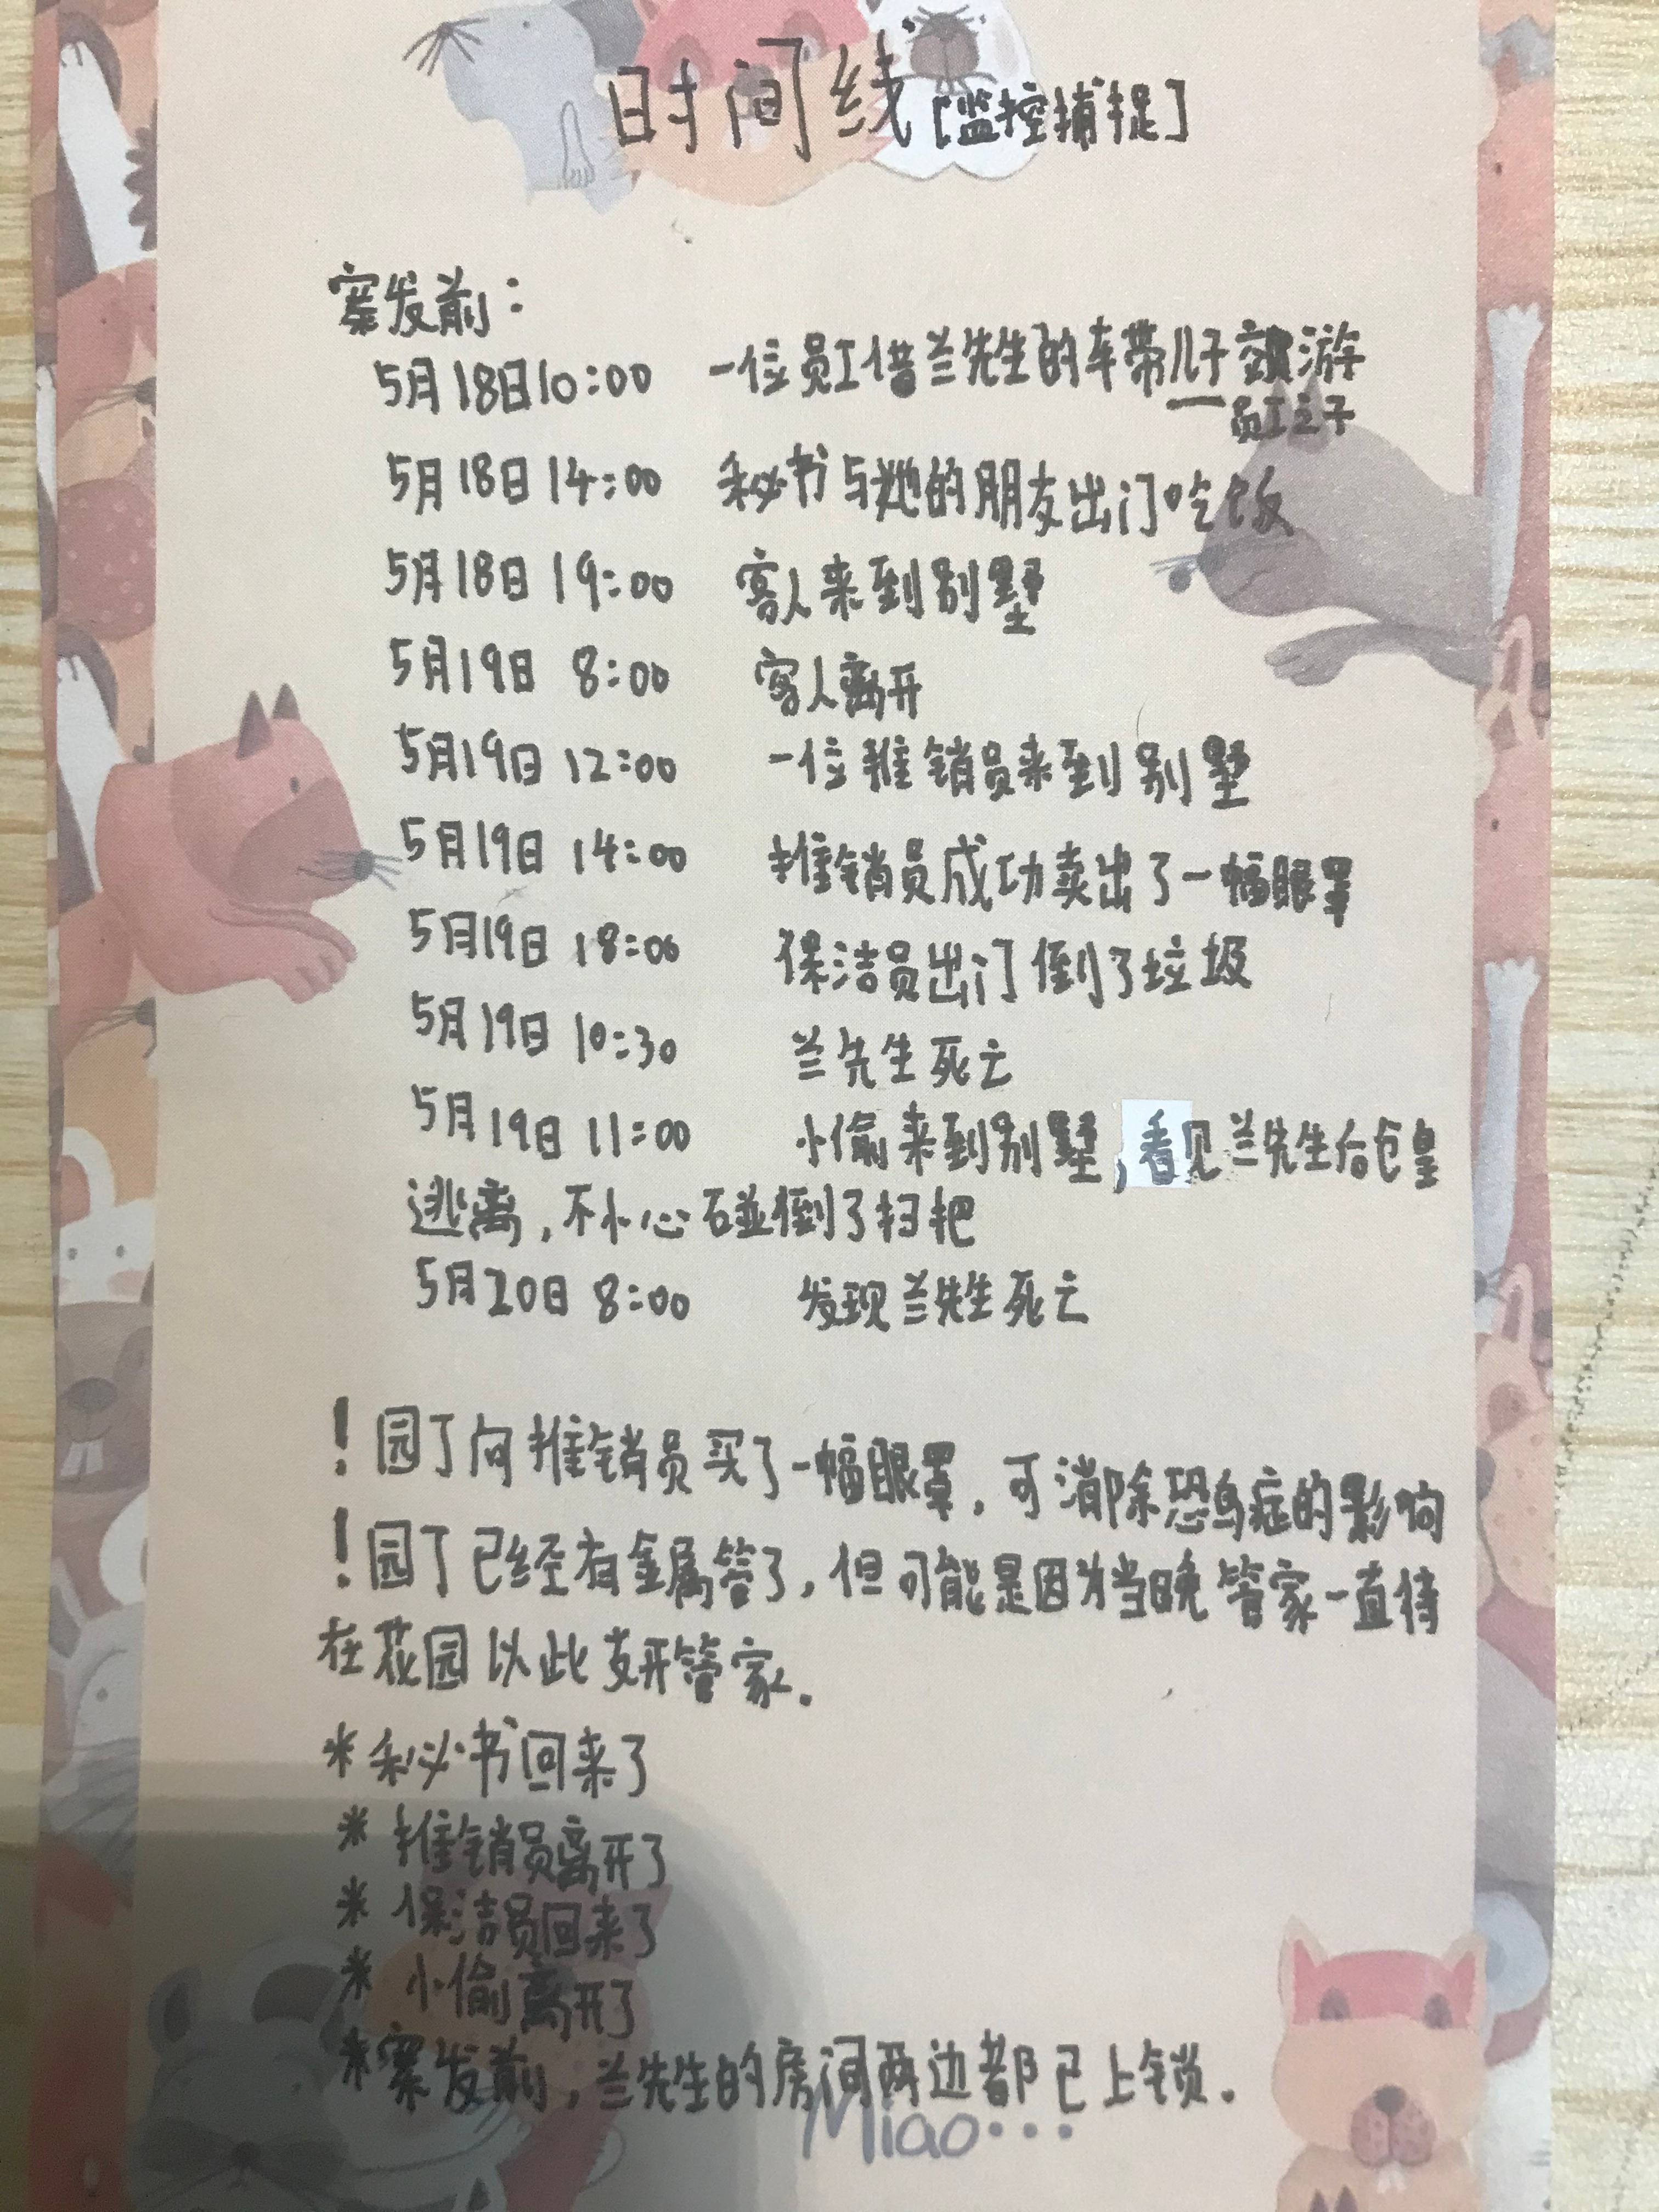 时间线[监控捕捉]
案发前：
5月18日10:00 一位员工借兰先生的车带儿子郊游
—员工之子
5月18日14:00 秘书与她的朋友出门吃饭
5月18日 19:00 客人来到别墅
5月19日 8:00 客人离开
5月19日 12:00 一位推销员来到别墅
5月19日 14:00 推销员成功卖出了一幅眼罩
5月19日 18:00 保洁员出门倒了垃圾
5月19日 10:30 兰先生死亡
5月19日 11:00 小偷来到别墅，看见兰先生后仓皇
逃离，不小心碰倒了扫把
5月20日 8:00 发现兰先生死亡
！园丁向推销员买了一幅眼罩，可消除恐鸟症的影响
！园丁已经有金属管了，但可能是因为当晚管家一直待
在花园以此支开管家.
*秘书回来了
* 推销员离开了
* 保洁员回来了
* 小偷离开了
*案发前，兰先生的房间两边都已上锁.
Miao...